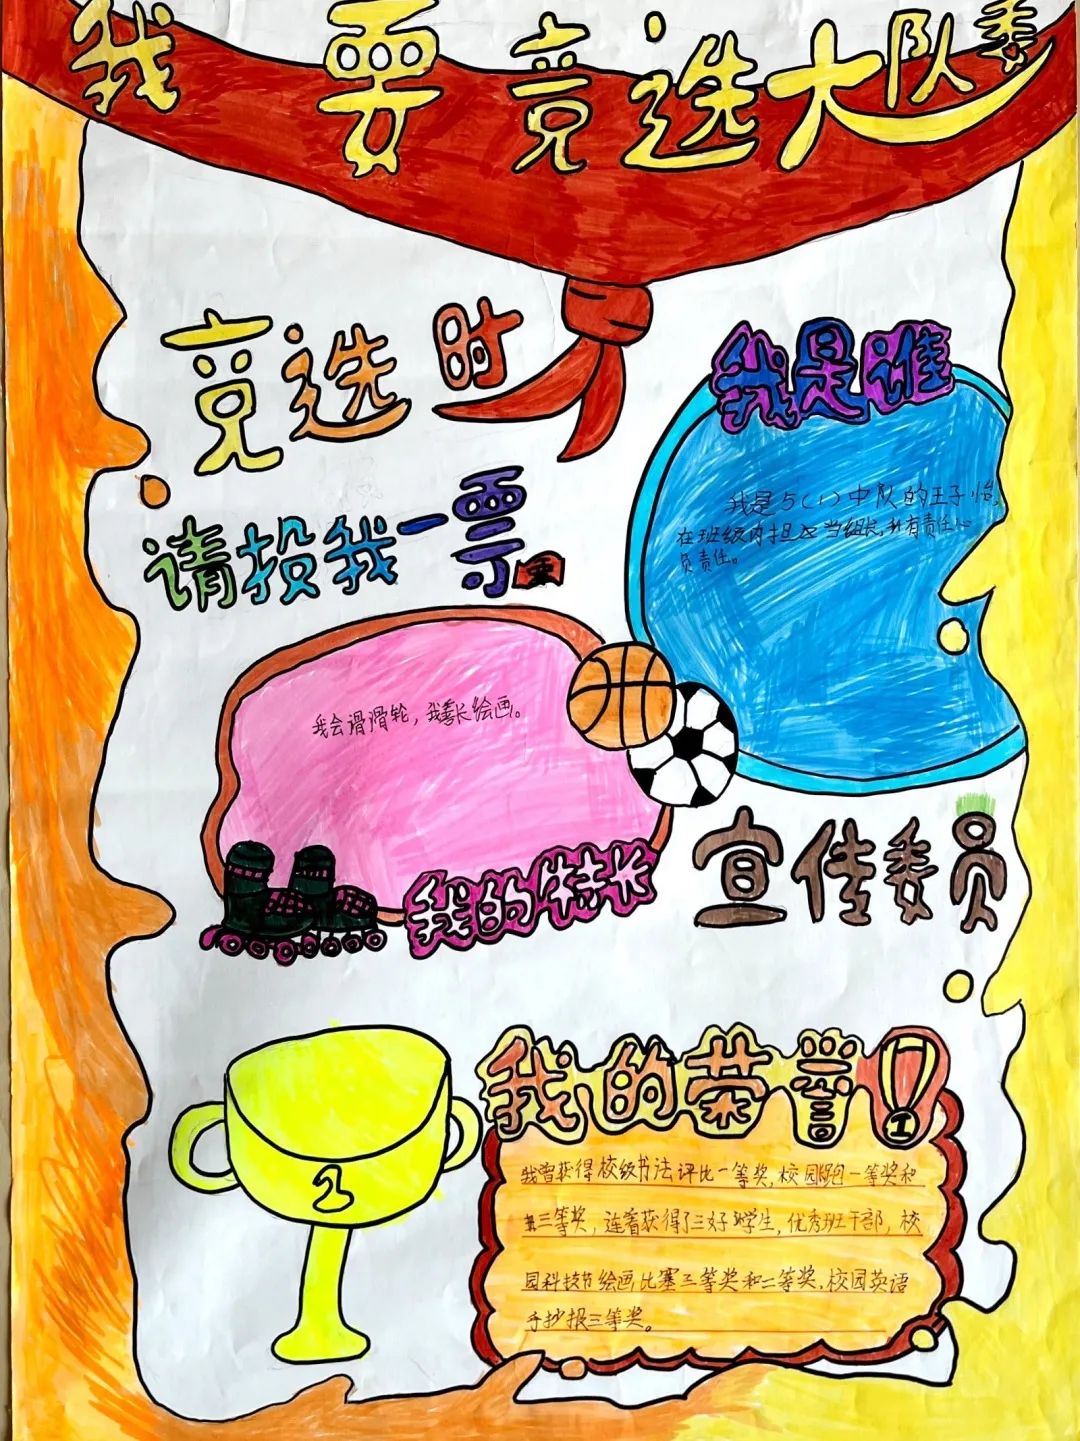 我要竞选大队委
竞选时
请投我一票
我是谁
我是5(1)中队的王子怡,
在班级内担当组长,有责任心
负责任。
我会滑滑轮，我善长绘画。
我的特长
宣传委员
2
我的荣誉
1
我曾获得校级书法评比一等奖，校园跑一等奖和
三等奖，连着获得了三好学生，优秀班干部，校
园科技节绘画比赛三等奖和二等奖，校园英语
手抄报三等奖。